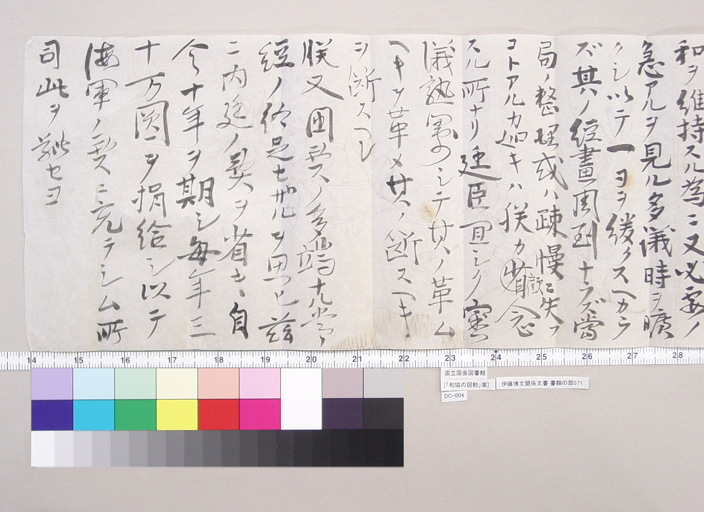 和ヲ維持スル為ニ又必要ノ
急アルヲ見ル多議時ヲ曠
クシ以テ一日ヲ緩クスヘカラ
ズ其ノ經畫周到ナラズ當
局ノ整理或ハ疎慢ニ失フ
コトアルカ如キハ朕カ省念
スル所ナリ廷臣宜シク審
議熟シテ其ノ革ム
ヘキヲ革メ其ノ断スヘキ
ヲ断スヘシ
朕又国費ノ多端ナル
經ノ給足セザルヲ思ヒ茲
ニ内廷ノ費ヲ省キ自
今十年ヲ期シ毎年三
十万圓ヲ捐給シ以テ
海軍ノ費ニ充テシム所
司此ヲセヨ
14 15 16 17 18 19 20 21 22 23 24 25 26 27 28
国立国会図書館
[「和協の詔勅」案]
DC-004
伊藤博文関係文書 書類の部571